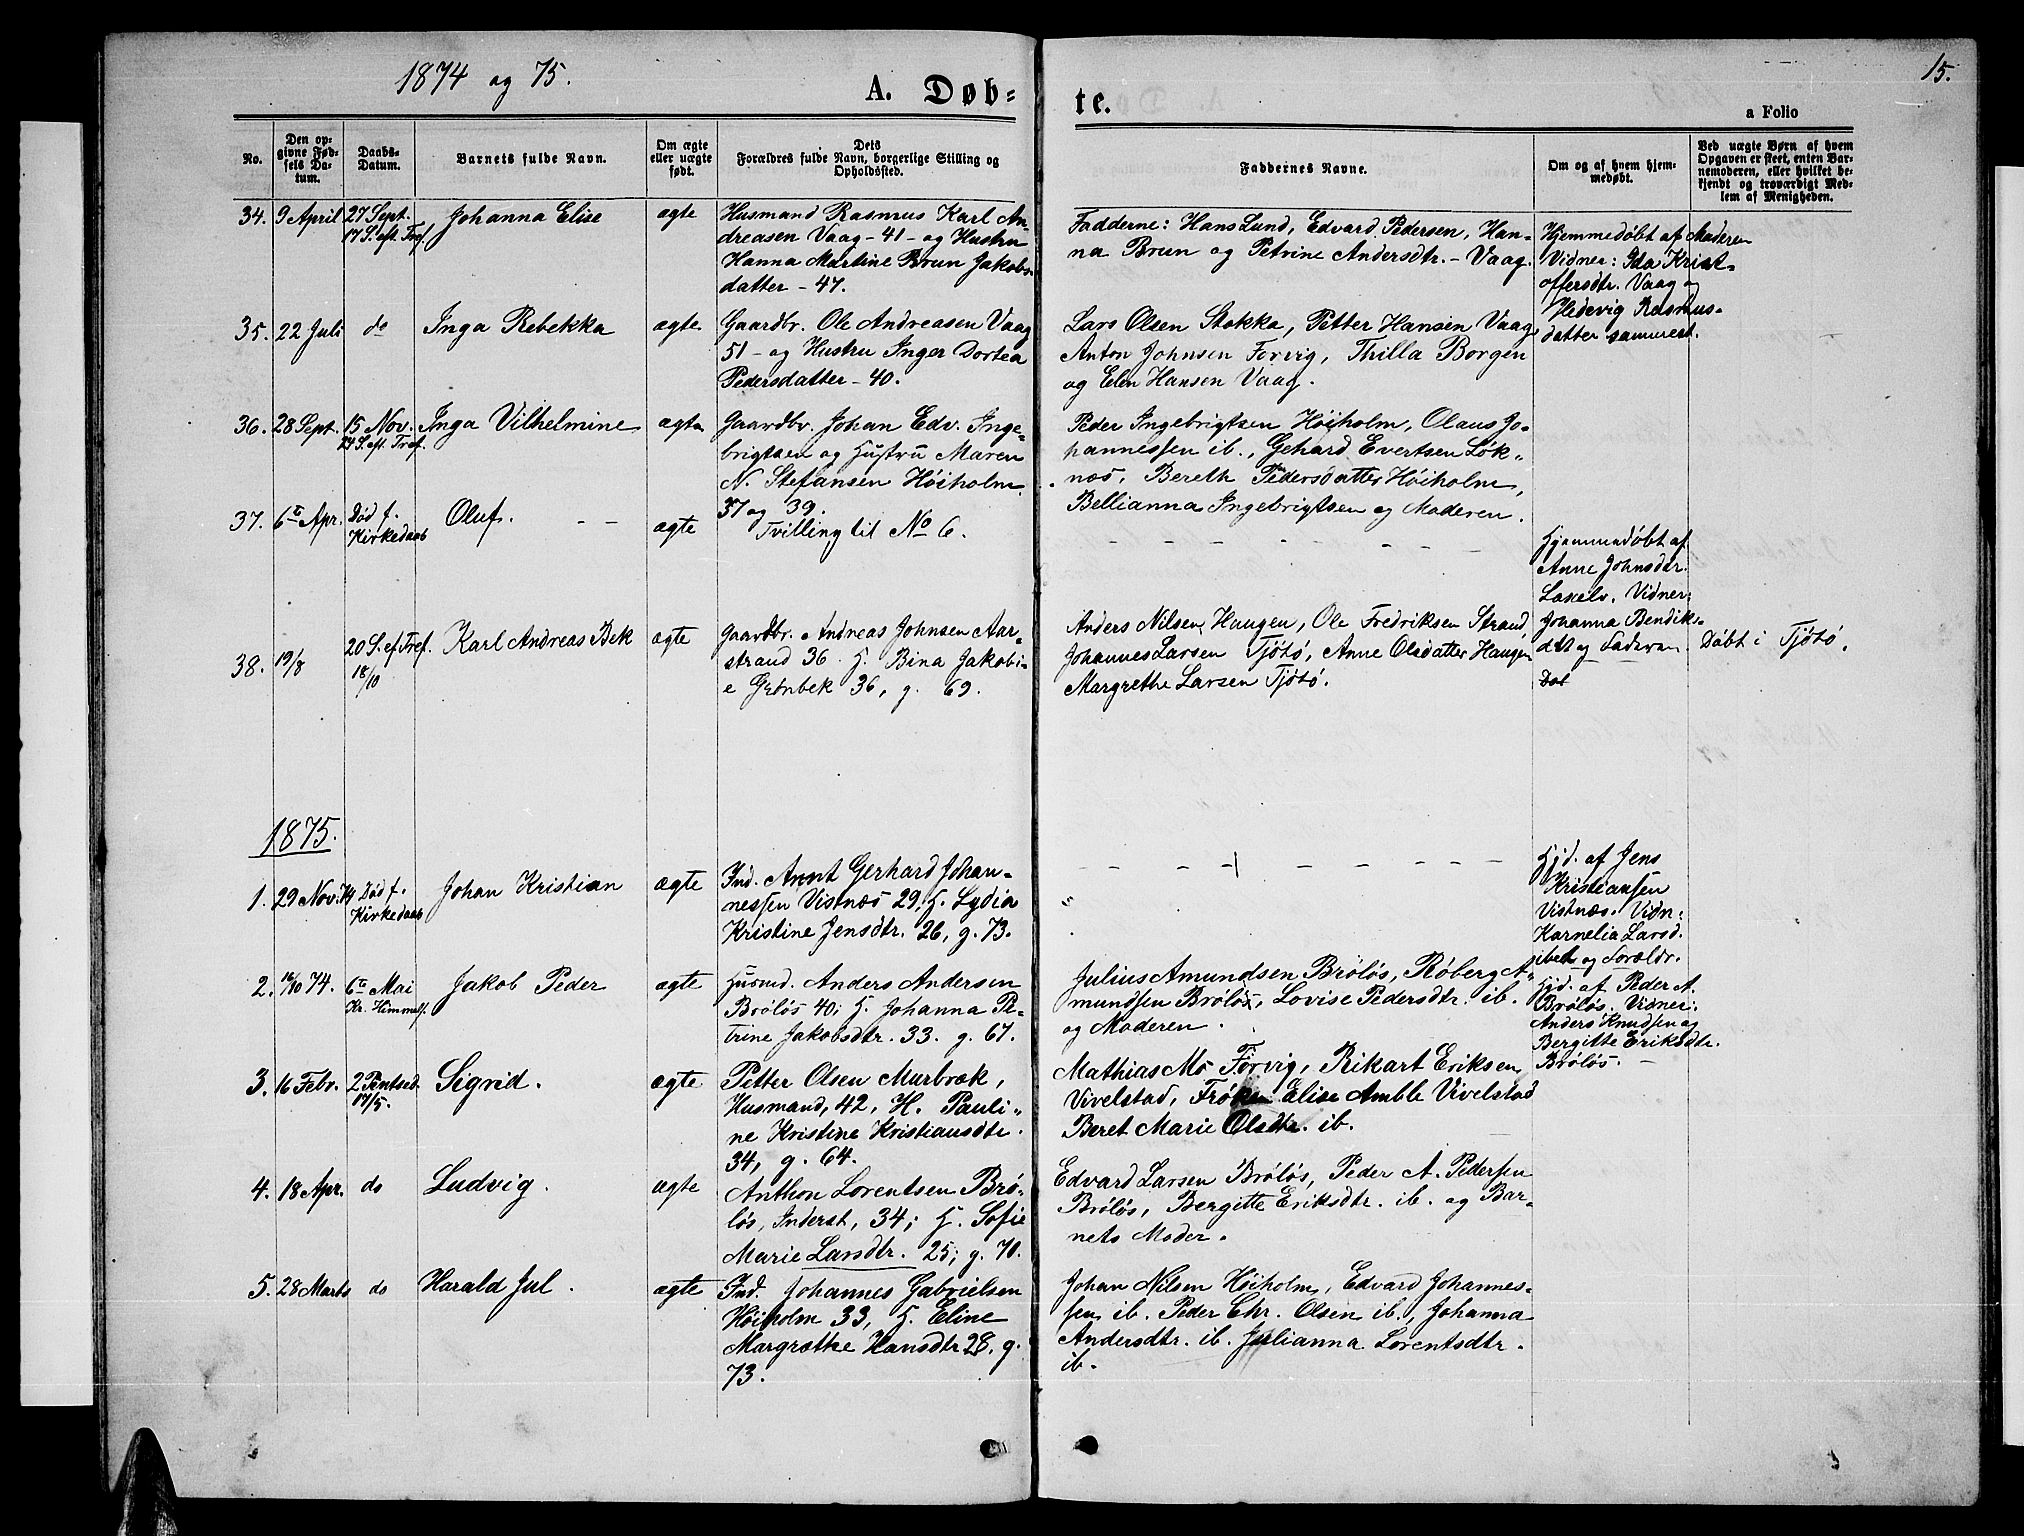 1874 og 75.
15.
A. Døb-
te.
a Folio
No.
Den op-
givne Fød-
sels Da-
tum.
Daabs-
Datum.
Barnets fulde Navn.
Om ægte
eller uægte
født.
Dets
Forældres fulde Navn, borgerlige Stilling og
Opholdssted.
Faddernes Navne.
Om og af hvem hjem-
medøbt.
Ved uægte Børn af hvem
Opgaven er skeet, enten Bar-
nemoderen, eller hvilket be-
kjendt og troværdigt Med-
lem af Menigheden.
34. 9 April 27 Sept.
17 S. eft Tref.
Johanna Elise
ægte
Husmand Rasmus Karl An-
dreasen Vaag - 41 - og Hustru
Hanna Martine Brun Jakobs-
datter - 47.
Fadderne: Hans Lund, Edvard Pedersen, Han-
na Brun og Petrine Andersdtr. - Vaag.
Hjemmedøbt af Moderen
Vidner: Ida Krist-
offersdtr. Vaag og
Hedevig Rasmus-
datter sammest.
35. 22 Juli do Inga Rebekka ægte
Gaardbr. Ole Andreasen Vaag
51 - og Hustru Inger Dortea
Pedersdatter - 40.
Lars Olsen Stokka, Petter Hansen Vaag
Anton Johnsen Forvig, Thilla Borgen
og Elen Hansen Vaag.
36. 28 Sept. 15 Nov.
24 S. eft. Tref.
Inga Vilhelmine
ægte
Gaardbr. Johan Edv. Inge-
brigtsen og Hustru Maren
N. Stefansen Høiholm
37 og 39.
Peder Ingebrigtsen Høiholm, Olaus Jo-
hannessen ib., Gehard Evertsen Løk-
næs, Bereth Pedersdatter Høiholm,
Bellianna Ingebrigtsen og Moderen.
37. 6te Apr. Død f.
Kirkedaab
Oluf. - -
ægte
Tvilling til No 6.
Hjemmedøbt af
Anne Johnsdtr.
Laxelv. Vidner:
Johanna Bendik-
dtr og Faderen
38. 19/8 20 S. ef Tref.
18/10
Karl Andreas Bek
ægte
Gaardbr. Andreas Johnsen Aar-
strand 36 H. Bina Jakobi-
e Grønbek 36, g. 69.
Anders Nilsen Haugen, Ole Fredriksen Strand,
Johannes Larsen Tjøtø, Anne Olsdatter Haugen
Margrethe Larsen Tjøtø.
Døbt i Tjøtø.
1875.
1. 29 Nov. 74 Død f.
Kirkedaab
Johan Kristian
ægte
Ind. Arnt Gerhard Johan-
nessen Vistnæs 29, H. Lydia
Kristine Jensdtr. 26, g. 73.
Hjd. af Jens
Kristiansen
Vistnæs. Vidn:
Karnelia Larsd.
ibet og Forældr.
2. 16/10 74. 6te Mai
Kr. Himmelf.
Jakob Peder
ægte
Husmd. Anders Andersen
Brøløs 40; H. Johanna Pe-
trine Jakobsdtr. 33. g. 67.
Julius Amundsen Brøløs, Røberg A-
mundsen Brøløs, Lovise Pedersdtr. ib.
og Moderen.
Hjd. af Peder A.
Brøløs. Vidner:
Anders Knudsen og
Bergitte Eriksdtr.
Brøløs.
3. 16 Febr. 2 Pentsed.
17/5.
Sigrid.
ægte
Petter Olsen Murbræk,
Husmand, 42, H. Pauli-
ne Kristine Kristiansdtr.
34, g. 64.
Mathias Mo Forvig, Rikart Eriksen
Vivelstad, Frøken Elise Amble Vivelstad
Beret Marie Olsdtr. ib.
4. 18 Apr. do Ludvig. ægte
Anthon Lorentsen Brø-
løs, Inderst, 34; H. Sofie
Marie Larsdtr. 25; g. 70.
Edvard Larsen Brøløs, Peder A. Pedersen
Brøløs, Bergitte Eriksdtr. ib. og Bar-
nets Moder.
5. 28 Marts do Harald Jul. ægte
Ind. Johannes Gabrielsen
Høiholm 33, H. Eline
Margrethe Hansdtr 28, g.
73.
Johan Nilsen Høiholm, Edvard Johannes-
sen ib. Peder Chr. Olsen ib., Johanna
Andersdtr. ib. Julianna Lorentsdtr.
ib.